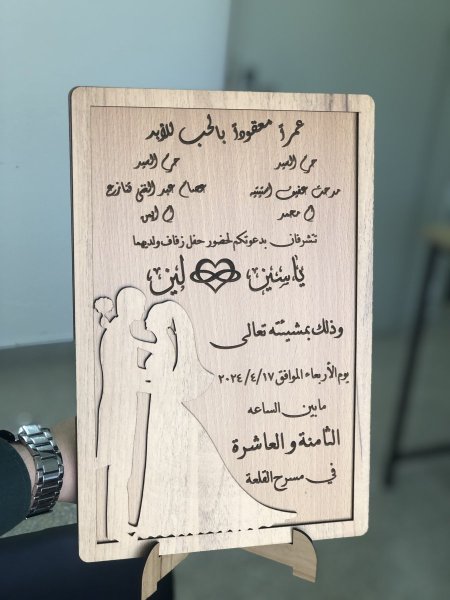 عمراً معقوداً بالحب للأبد
حرم السيد
حرم السيد
مدحت عفيف استيتيه
عصام عبد الغني قنازع
ام محمد
ام ايس
تتشرفان بدعوتكم لحضور حفل زفاف ولديهما
ياسين لين
وذلك بمشيئته تعالى
يوم الأربعاء الموافق ٢٠٢٤/٤/١٧
مابين الساعه
الثامنة والعاشرة
في مسرح القلعة